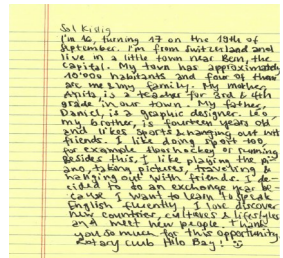 Sol Kislig
I'm 16, turning 17 on the 19th of
September. I'm from Switzerland and
live in a little town near Bern, the
capital. My town has approximately
10'000 habitants and four of them
are me & my family. My mother,
Anita, is a teacher for 3rd & 4th
grade in our town. My father,
Daniel, is a graphic designer. Leo,
my brother, is fourteen years old
and likes sports & hanging out with
friends. I like doing sport too,
for example floorhockey or running
Besides this, I like playing the pi-
ano, taking pictures, traveling &
hanging out with friends. I de-
cided to do an exchange year be-
cause I want to learn to speak
English fluently, I love discover
new countries, cultures & lifestyles
and meet new people. Thank
you so much for this opportunity
Rotary Club Hilo Bay!